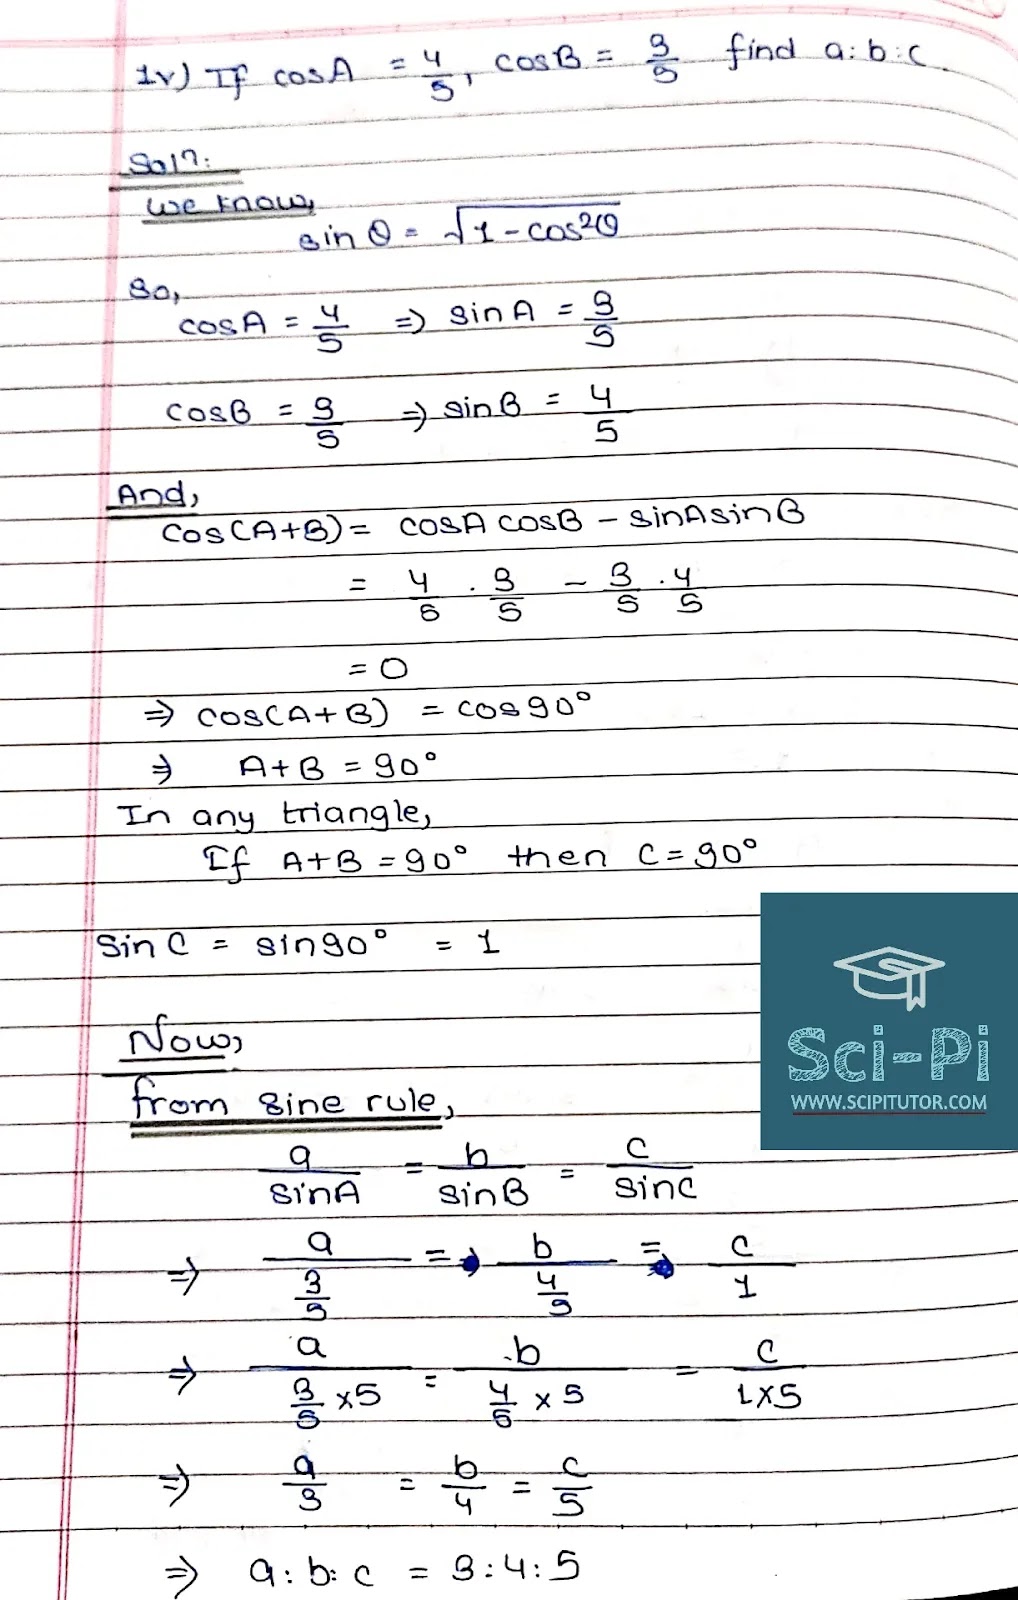 iv) If cosA = 4/5, cosB = 3/5 find a:b:c.
Soln:
we know,
sin θ = √(1 - cos²θ)
So,
cosA = 4/5 ⇒ sinA = 3/5
cosB = 3/5 ⇒ sinB = 4/5
And,
cos(A+B) = cosA cosB - sinA sinB
= 4/5 . 3/5 - 3/5 . 4/5
= 0
⇒ cos(A+B) = cos90°
⇒ A+B = 90°
In any triangle,
If A+B = 90° then C = 90°
Sin C = sin90° = 1
Sci-Pi
WWW.SCIPITUTOR.COM
Now,
from sine rule,
a/sinA = b/sinB = c/sinC
⇒ a/(3/5) = b/(4/5) = c/1
⇒ a/(3/5 × 5) = b/(4/5 × 5) = c/(1×5)
⇒ a/3 = b/4 = c/5
⇒ a:b:c = 3:4:5